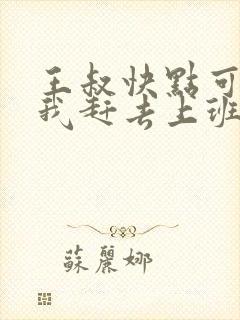 王叔快點可
我赶去上班
蘇麗娜